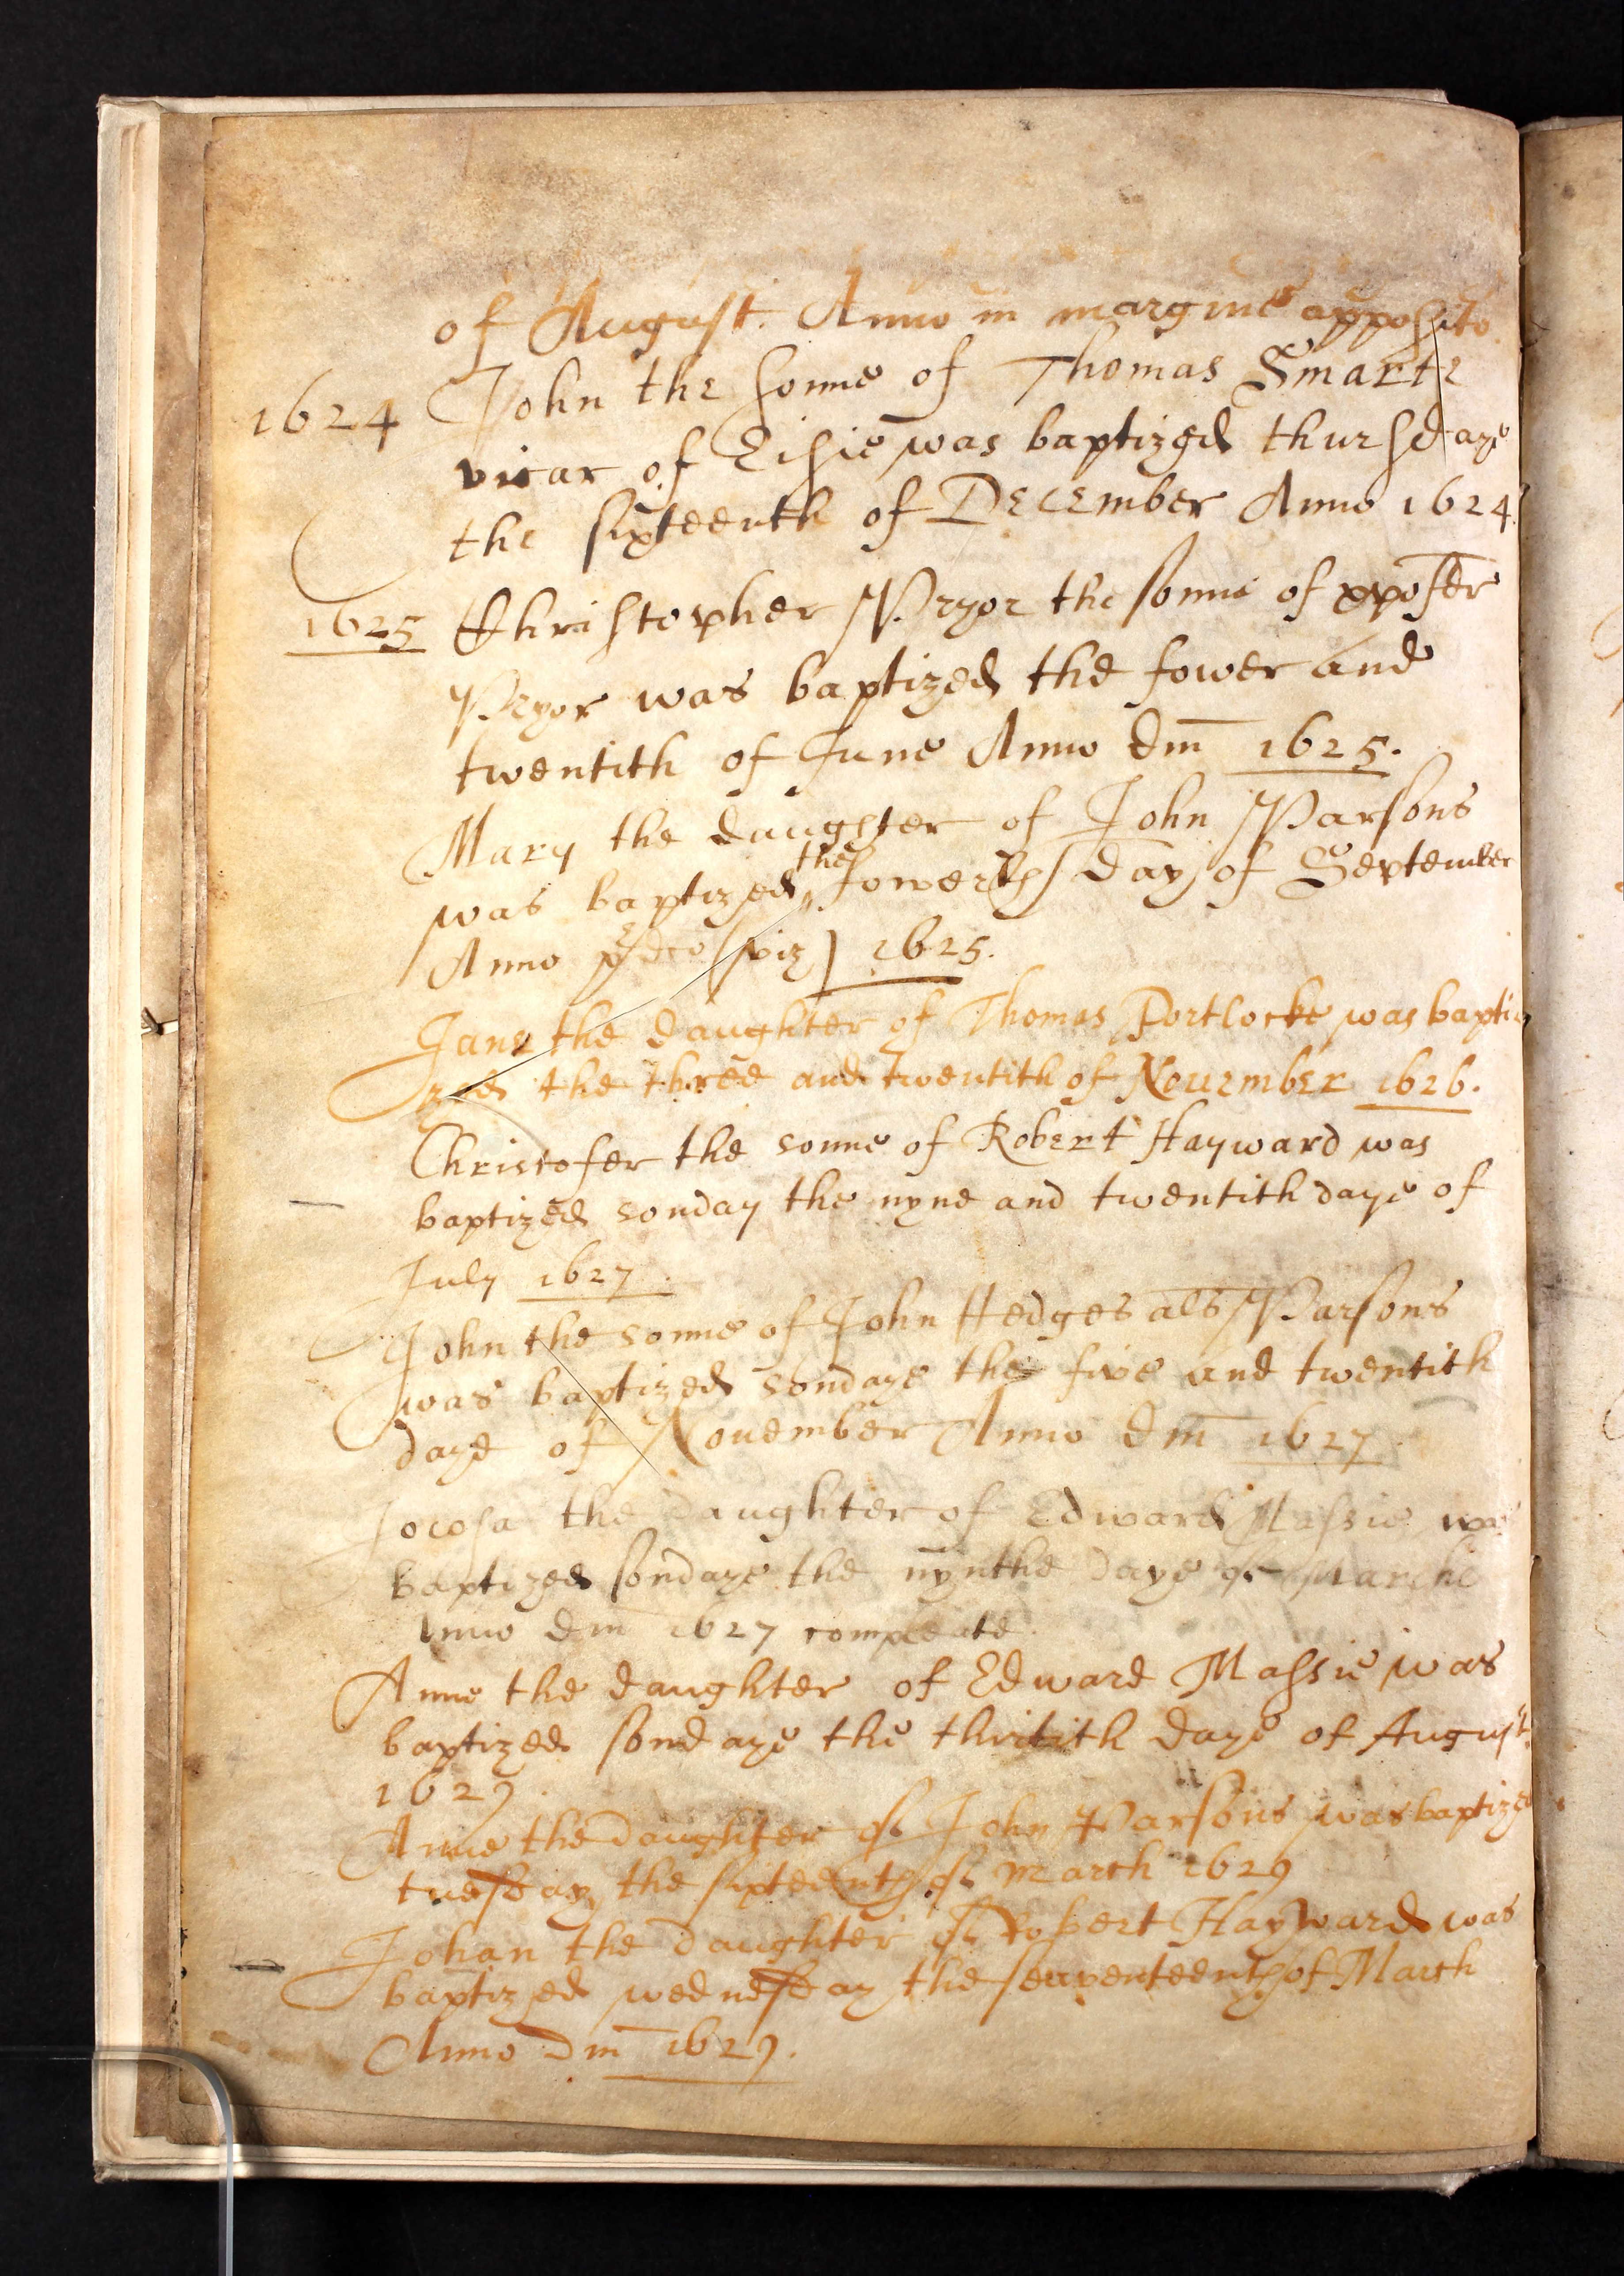 of August. Anno in margine apposito
1624 John the sonne of Thomas Smarte
vicar of Eisie was baptized thursdaye
the sixteenth of December Anno 1624.
1625 Christopher Pryor the sonne of xpofer
Pryor was baptized the fower and
twentith of June Anno dm 1625.
Mary the daughter of John Parsons
was baptized the fowerth day of September
Anno pdco (viz) 1625.
Jane the daughter of Thomas Portlocke was bapti
zed the three and twentith of November 1626.
Christofer the sonne of Robert Hayward was
baptized sonday the nyne and twentith daye of
July 1627.
John the sonne of John Hedges als Parsons
was baptized sondaye the five and twentith
daye of November Anno dm 1627.
Jocosa the daughter of Edward Massie was
baptized sondaye the nynthe daye of Marche
Anno dm 1627 compleate.
Anne the daughter of Edward Massie was
baptized sondaye the thritith daye of August
1629.
Anne the daughter of John Parsons was baptized
tuesday the sixteenth of March 1629
Johan the daughter of Robert Hayward was
baptized wednesday the seaventeenth of March
Anno Dm 1629.